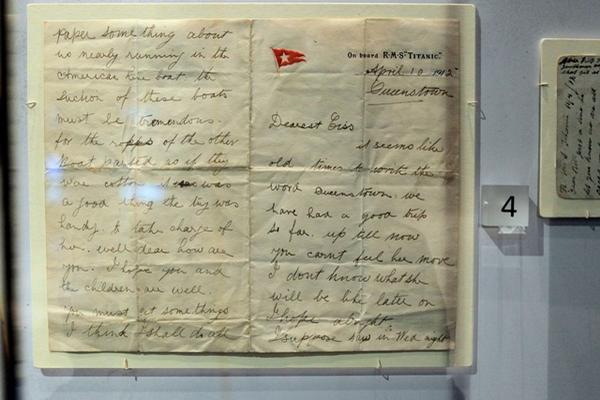 On board R.M.S. "TITANIC."
April 10 1912
Queenstown
Dearest Ciss
it seems like
old times to work the
word Queenstown. we
have had a good trip
so far. up till now
you carnt feel her move
I dont know what she
will be like later on
I hope alright
I suppose saw in Wed night
paper something about
us nearly running in the
American line boat. the
suction of these boats
must be tremendous.
for the ropes of the other
Boat parted as if they
was cotton it was
a good thing the tug was
handy to take charge of
her. well dear how are
you. I hope you and
the children are well.
must get some things
I think I shall do all
4